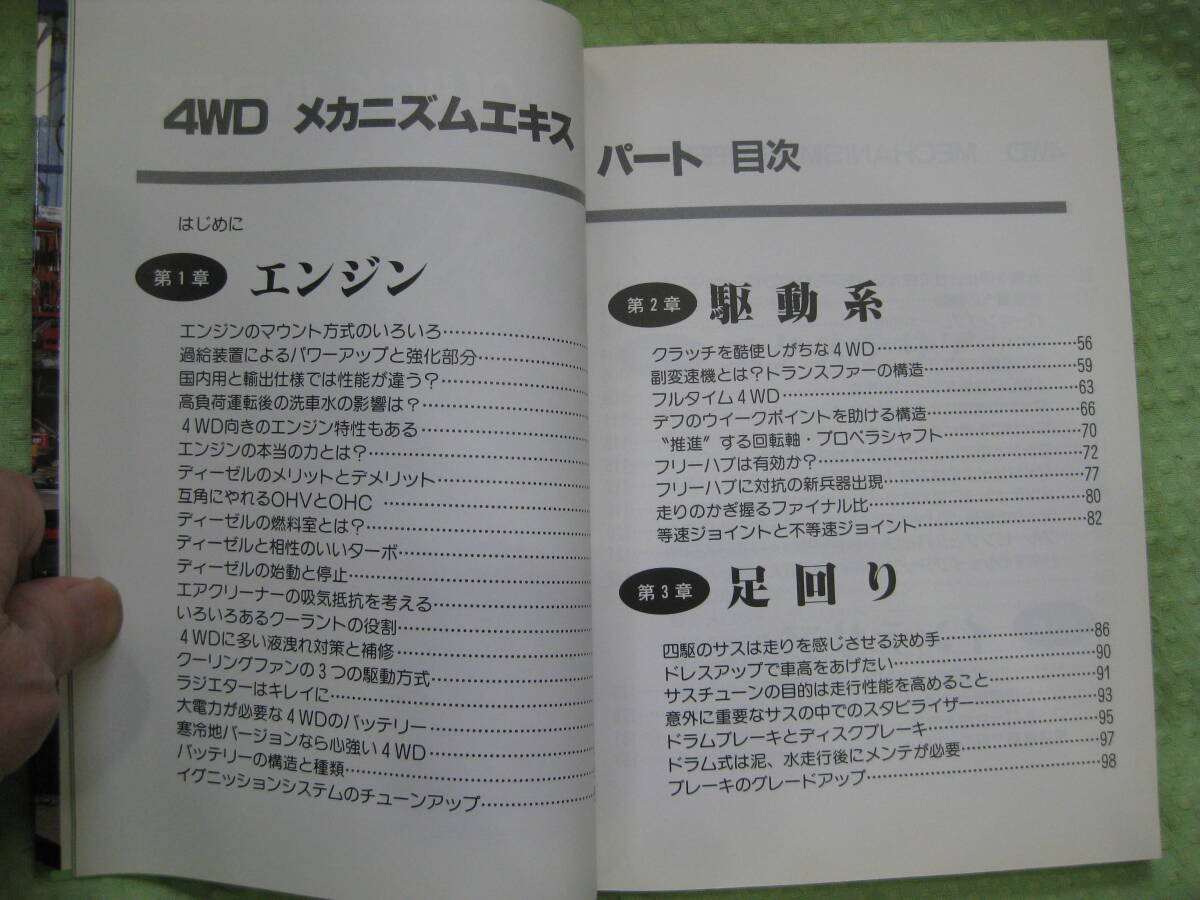 4WD メカニズムエキスパート 目次
はじめに
第1章 エンジン
エンジンのマウント方式のいろいろ
過給装置によるパワーアップと強化部分
国内用と輸出仕様では性能が違う？
高負荷運転後の洗車水の影響は？
4WD向きのエンジン特性もある
エンジンの本当の力とは？
ディーゼルのメリットとデメリット
互角にやれるOHVとOHC
ディーゼルの燃料室とは？
ディーゼルと相性のいいターボ
ディーゼルの始動と停止
エアクリーナーの吸気抵抗を考える
いろいろあるクーラントの役割
4WDに多い液洩れ対策と補修
クーリングファンの3つの駆動方式
ラジエターはキレイに
大電力が必要な4WDのバッテリー
寒冷地バージョンなら心強い4WD
バッテリーの構造と種類
イグニッションシステムのチューンアップ
第2章 駆動系
クラッチを酷使しがちな4WD 56
副変速機とは？トランスファーの構造 59
フルタイム4WD 63
デフのウイークポイントを助ける構造 66
〝推進〟する回転軸・プロペラシャフト 70
フリーハブは有効か？ 72
フリーハブに対抗の新兵器出現 77
走りのかぎ握るファイナル比 80
等速ジョイントと不等速ジョイント 82
第3章 足回り
四駆のサスは走りを感じさせる決め手 86
ドレスアップで車高をあげたい 90
サスチューンの目的は走行性能を高めること 91
意外に重要なサスの中でのスタビライザー 93
ドラムブレーキとディスクブレーキ 95
ドラム式は泥、水走行後にメンテが必要 97
ブレーキのグレードアップ 98